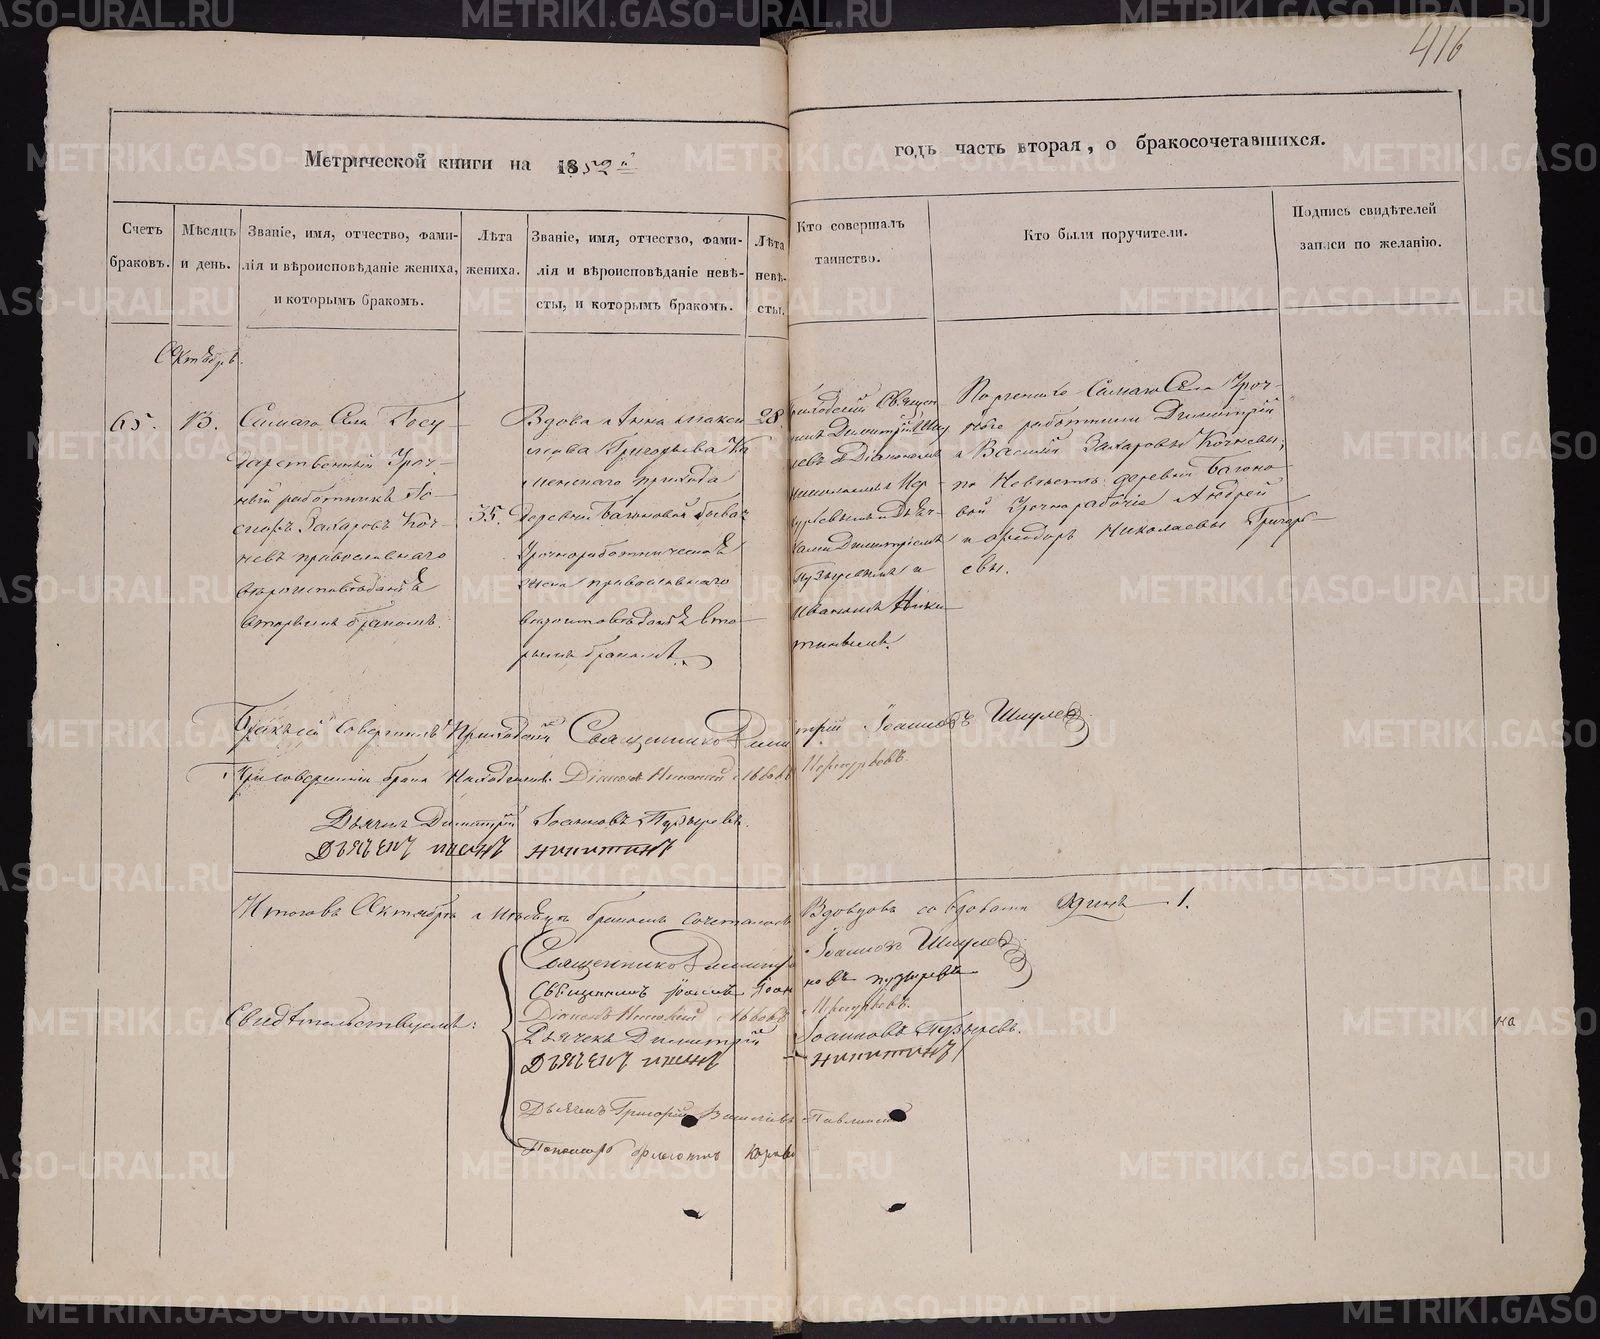 416
Метрической книги на 1852й
годъ часть вторая, о бракосочетавшихся.
Счетъ браковъ.
Мѣсяцъ и день.
Званіе, имя, отчество, фами-
лія и вѣроисповѣданіе жениха,
и которымъ бракомъ.
Лѣта
жениха.
Званіе, имя, отчество, фами-
лія и вѣроисповѣданіе невѣ-
сты, и которымъ бракомъ.
Лѣта
невѣ-
сты.
Кто совершалъ
таинство.
Кто были поручители.
Подпись свидѣтелей
записи по желанію.
Октябрь.
65.
13.
Самаго Села Госу-
дарственный Уроч-
ный работникъ
Захаровъ Коч-
невъ православнаго
вѣроисповѣданія
вторымъ бракомъ.
35.
Вдова Анна Макси
мова Григорьева Ка
менскаго прихода
деревни Баженовой
Урочноработническая
жена православнаго
вѣроисповѣданія вто-
рымъ бракомъ.
28.
Приходскій Священ
никъ Димитрій Шму
левъ съ Діакономъ
Николаемъ
и Дьяч-
ками Димитріемъ
Пузыревымъ и
Иваномъ Ники
тинымъ.
По женихѣ Самаго Села Уроч-
ные работники Димитрій
и Василій Захаровы Кочневы;
по Невѣстѣ деревни Бажено-
вой Урочнорабочіе Андрей
и Ѳеодоръ Николаевы Григорь-
евы.
Бракъ сей Совершилъ Приходскій Священникъ Дими
трій Іоанновъ Шмулев
При совершеніи брака Находились: Діаконъ Николай Львовъ
Дьячекъ Димитрій Іоанновъ Пузыревъ.
Дьячекъ Иванъ Никитинъ
Итого въ Октябрѣ Мѣсяцѣ бракомъ сочеталось Вдовцовъ со вдовами Одинъ 1.
Свидѣтельствуемъ:
Священникъ Димитрій Іоаннов Шмулев
Священникъ Іоаннъ Іоан новъ Пузыревъ
Діаконъ Николай Львовъ
Дьячекъ Димитрій Іоанновъ Пузыревъ.
Дьячекъ Иванъ Никитинъ
Дьячекъ Григорій Васильевъ
Пономарь
на
METRIKI.GASO-URAL.RU